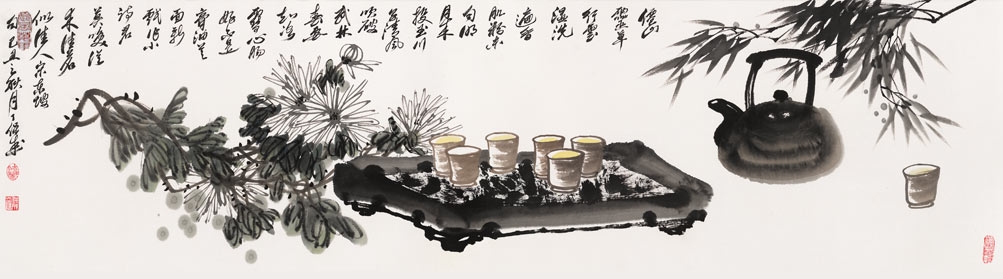 僊山
靈草
行雲
湿洗
遍香
肌粉未
匀明
月来
投玉川
子清風
吹破
武林
春要
知冰
雪心腸
好不是
膏油首
面新
戲作小
詩君
莫笑從
来佳茗
似佳人宋東坡
己丑之秋月王